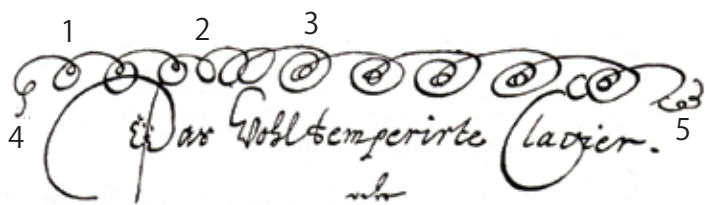 1 2 3
4 5
Das Wohltemperirte Clavier.
oder